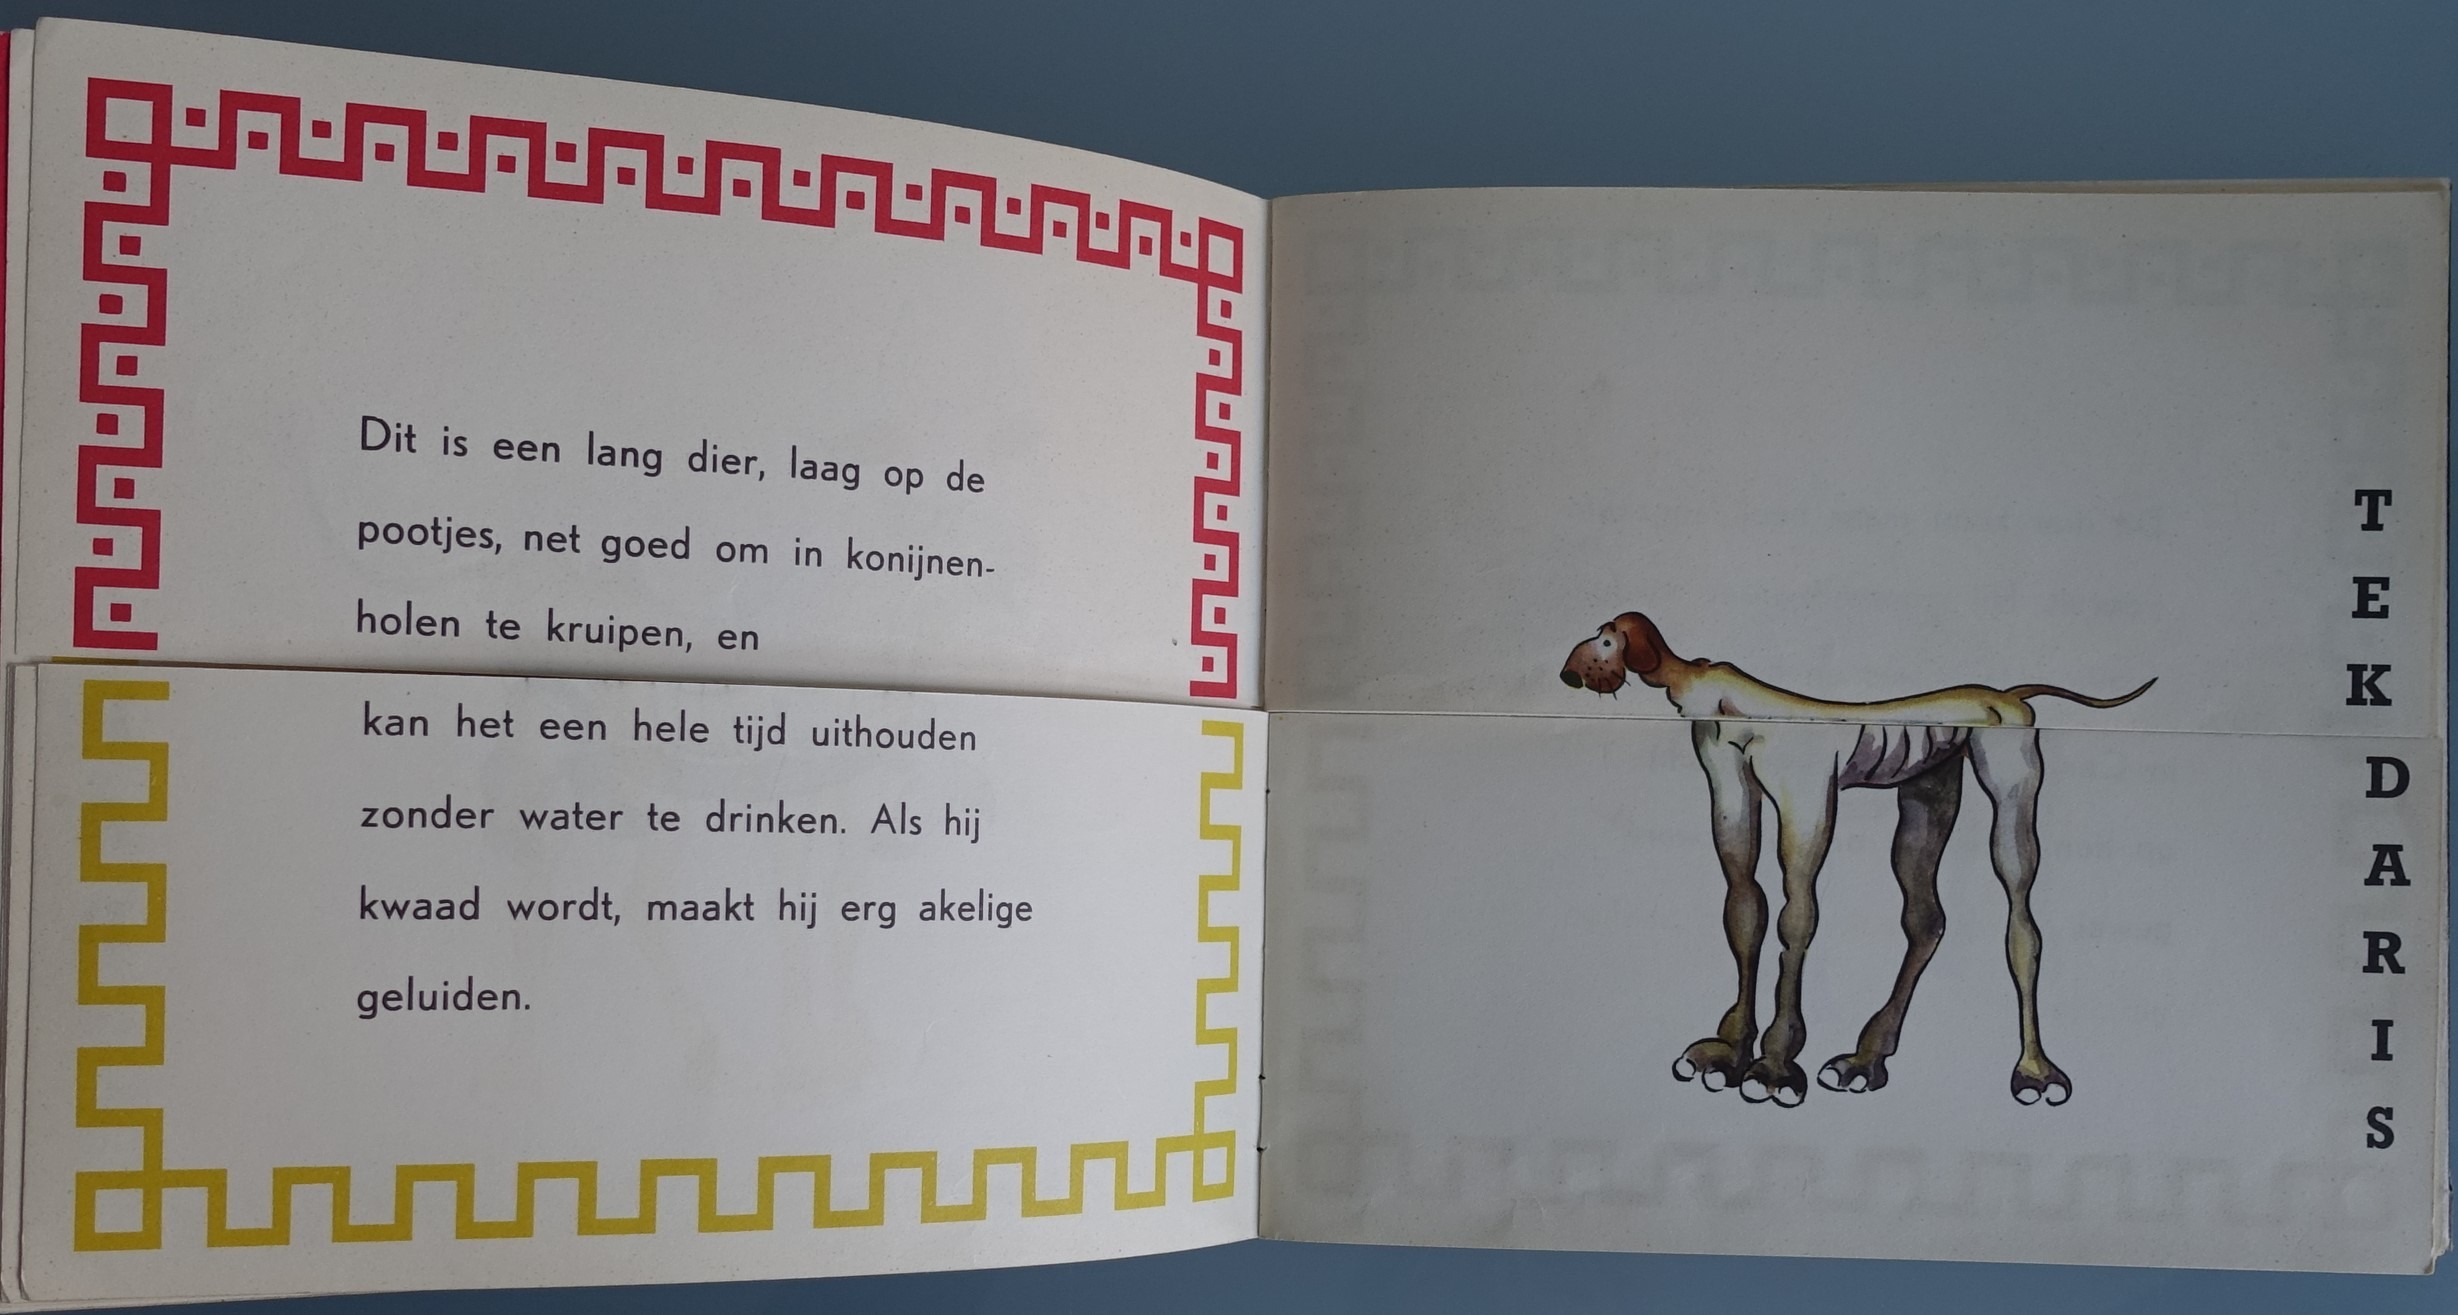 Dit is een lang dier, laag op de
pootjes, net goed om in konijnen-
holen te kruipen, en
kan het een hele tijd uithouden
zonder water te drinken. Als hij
kwaad wordt, maakt hij erg akelige
geluiden.
TEK
DARIS